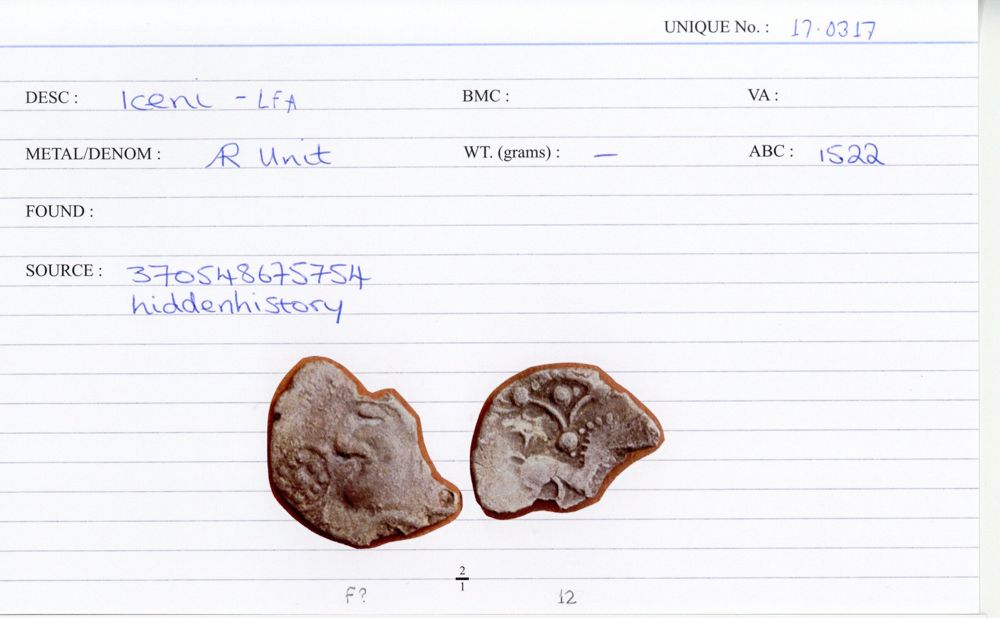 UNIQUE No. : 17.0317
DESC : Iceni - LFA BMC : VA :
METAL/DENOM : AR Unit WT. (grams) : — ABC : 1522
FOUND :
SOURCE : 370548675754
hiddenhistory
2
1
F? 12